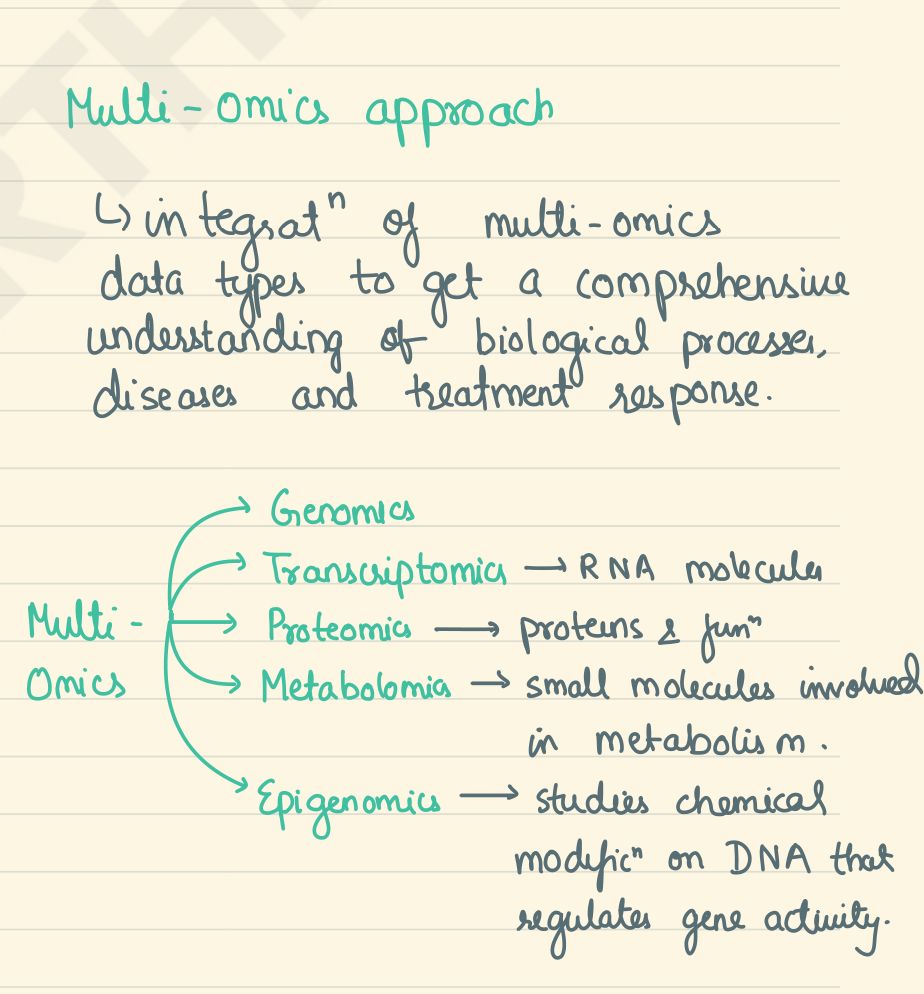 Multi-omics approach
↳ integratⁿ of multi-omics
data types to get a comprehensive
understanding of biological processes,
diseases and treatment response.
Genomics
Transcriptomics → RNA molecules
Multi- Proteomics → proteins & funⁿ
Omics Metabolomics → small molecules involved
in metabolism.
Epigenomics → studies chemical
modificⁿ on DNA that
regulates gene activity.